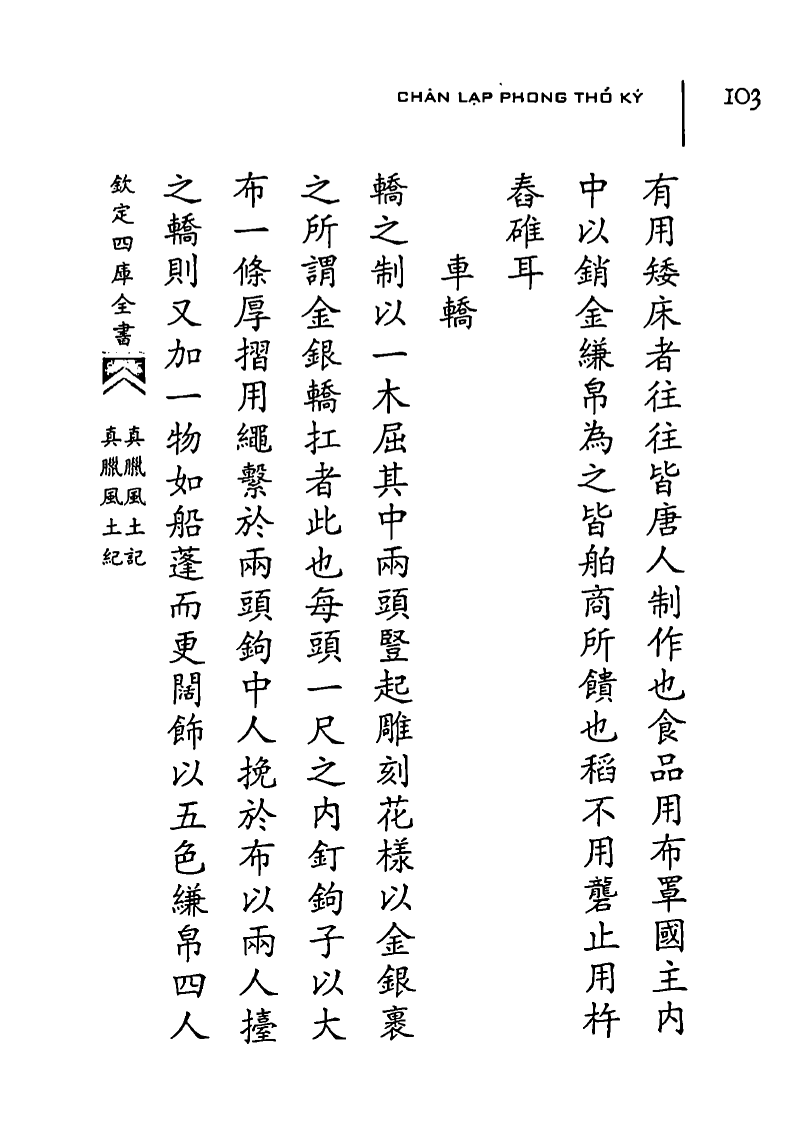 CHÂN LẠP PHONG THỔ KÝ 103
有用矮床者往往皆唐人制作也食品用布罩國主内
中以銷金縑帛為之皆舶商所饋也稻不用礱止用杵
舂碓耳
車轎
轎之制以一木屈其中兩頭豎起雕刻花樣以金銀裹
之所謂金銀轎扛者此也每頭一尺之内釘鉤子以大
布一條厚摺用繩繫於兩頭鉤中人挽於布以兩人擡
之轎則又加一物如船蓬而更闊飾以五色縑帛四人
欽定四庫全書
真臘風土記
真臘風土紀